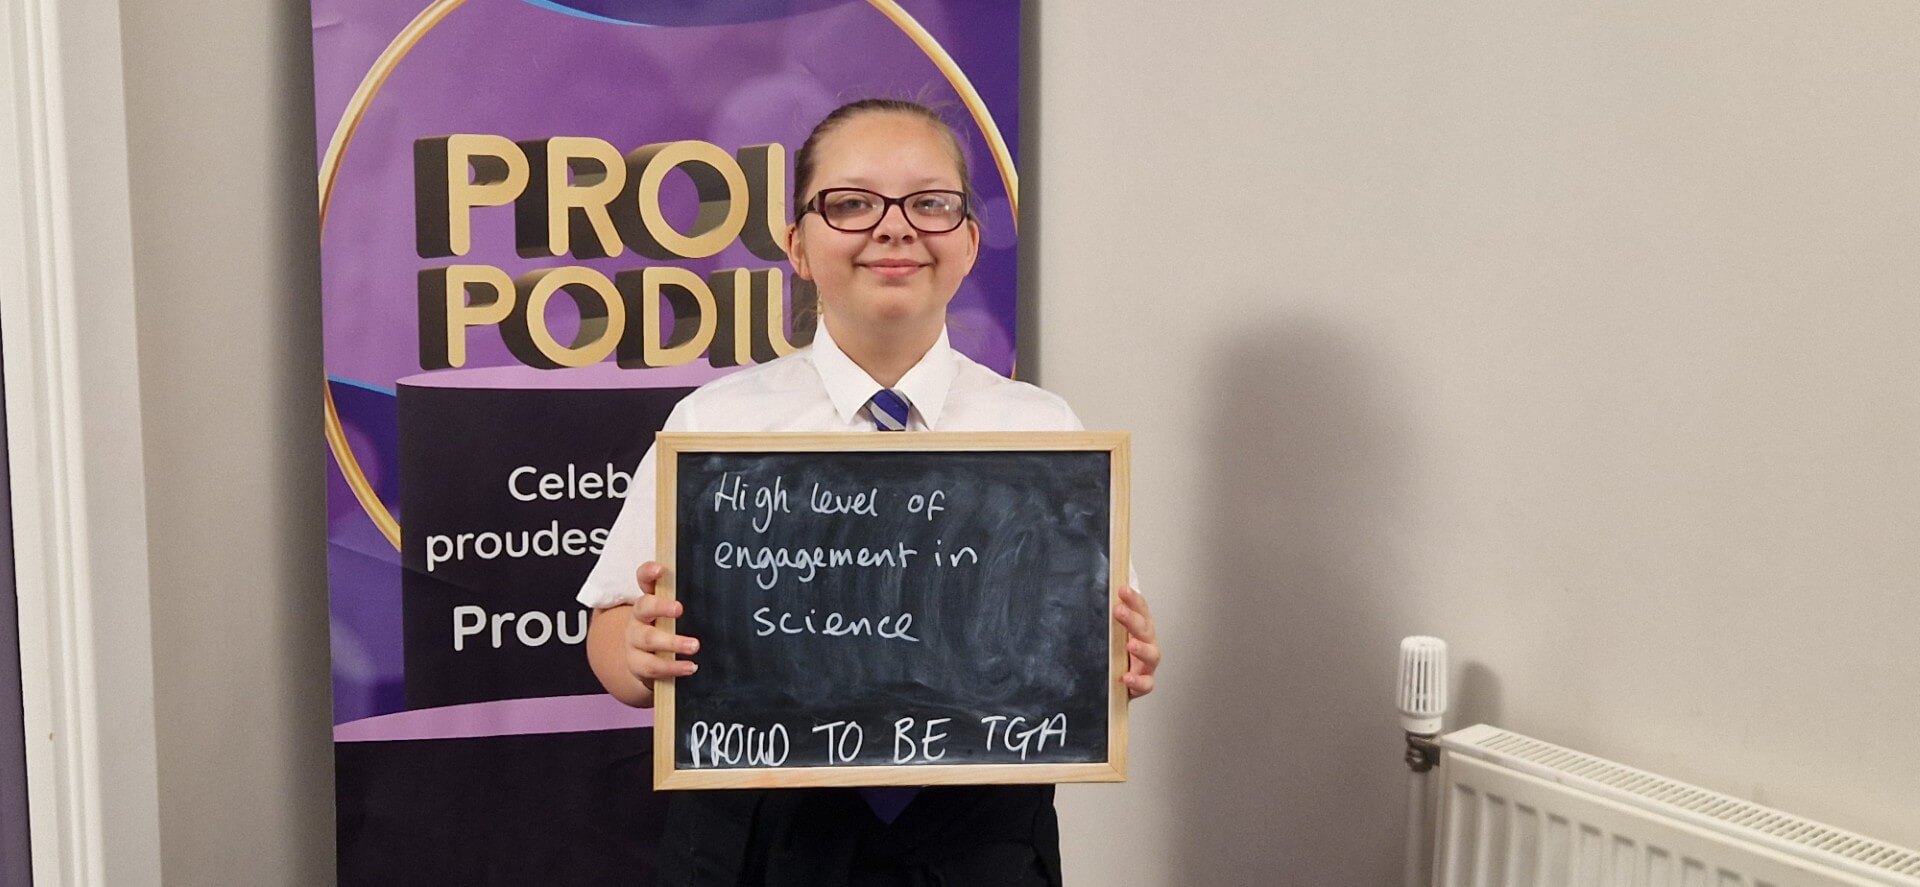 PROU
PODIU
Celeb
proudes
Prou
High level of
engagement in
science
PROUD TO BE TGA